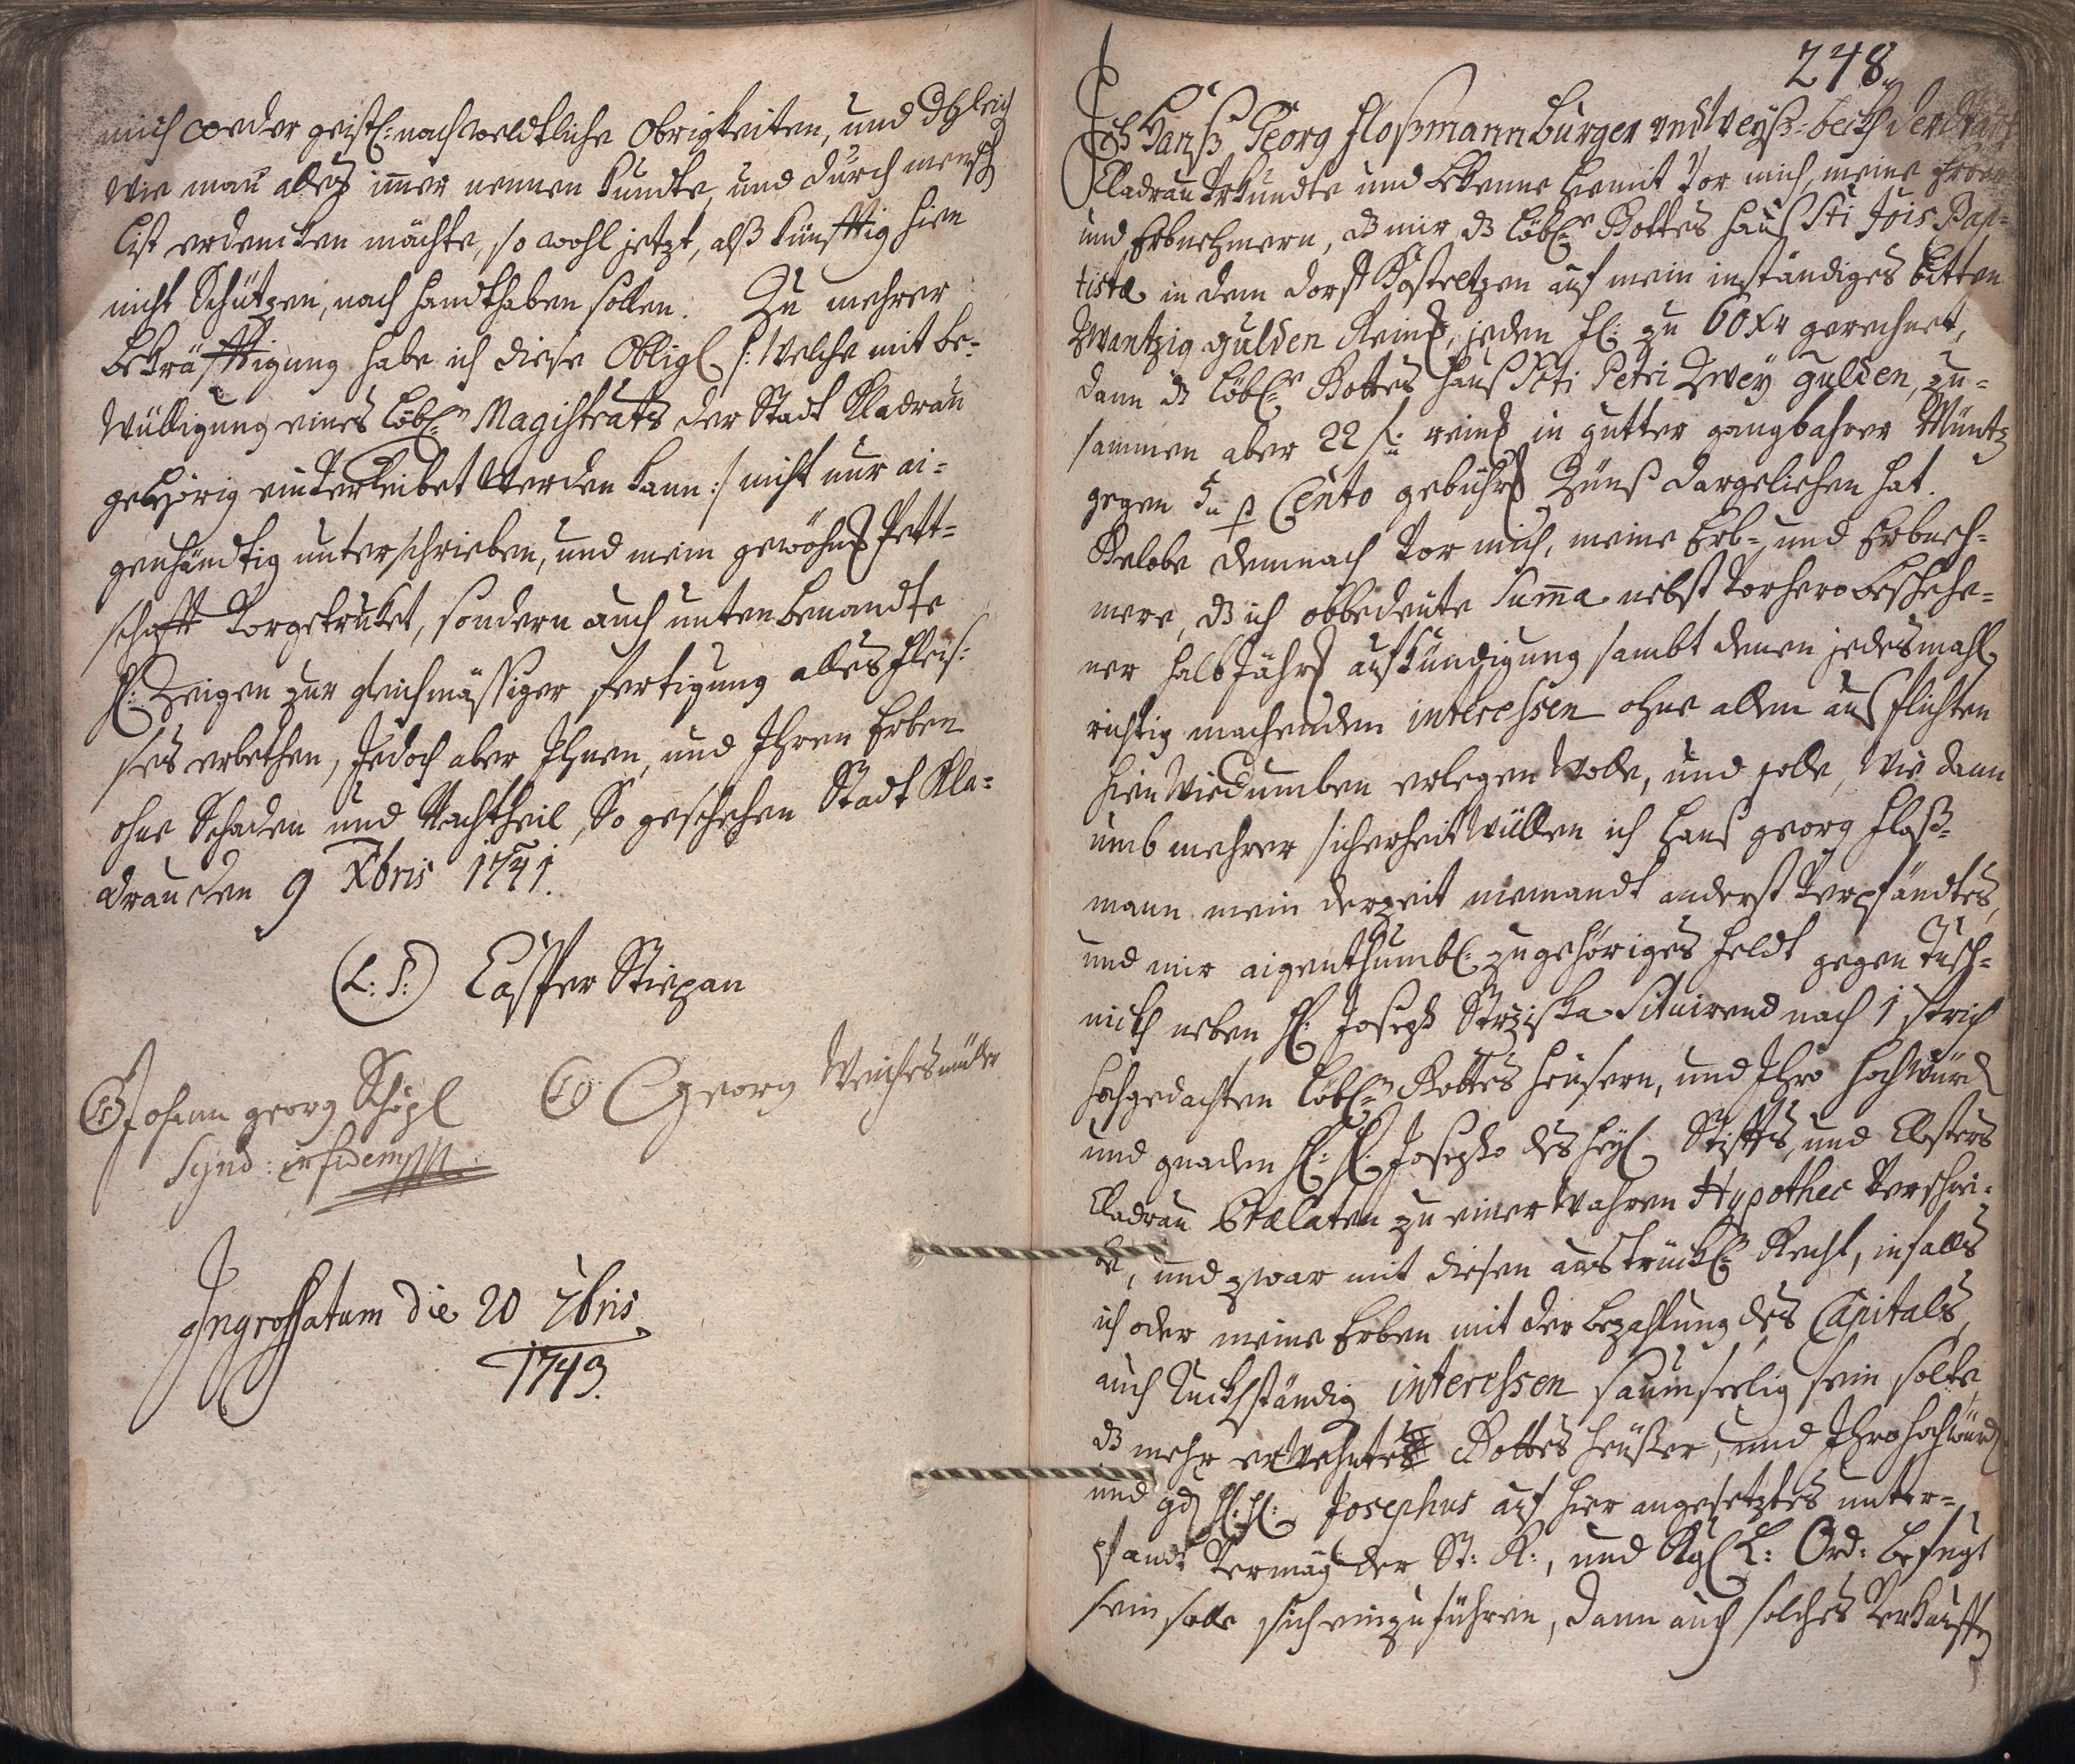 mich weder geistl: noch weldtliche Obrigkeiten, und dgleich
wie man alles im̄er nennen kundte, und durch mensch
list erdencken möchte, so wohl jetzt, alß künfftig hier
nicht Schützen, noch handthaben sollen. Zu mehrer
bekräfftigung habe ich diese Obligl /: welche mit be-
wülligung eines löbln Magistrats der Stadt Kladrau
gehörig einverleibet werden kann :/ nicht nur ai-
genhändtig unterschrieben, und mein gewöhnl Pett-
schafft vorgetruket, sondern auch unten benandte
H: Zeigen zur gleichmässiger fertigung alles fleis-
ses erbethen, Jedoch aber Ihnen, und Ihren Erben
ohne Schaden und Nachtheil, So geschehen Stadt Kla-
drau den 9 Xbris 1741.
(L: S:) Casper Stiepan
(LS) Johann georg Schöpl
(LS) Georg Weichesmüller
Synd: in fidem mpp
Ingrossatum die 20 7bris
1743.
248
Ich Hanß Georg Floßmann Burger und Weyß-beckh der Stadt
Cladrau Urkundte und bekenne hiemit vor mich, meine Erben
und Erbnehmern, dz mir dz löble Gottes hauß Sti Jois Bap-
tistæ in dem dorff Kosteltzen auf mein inständiges bitten
Zwantzig gulden Reinl, jeden fl: zu 60 xr gerechnet,
dann dz löble Gottes Hauß Scti Petri Zwey gulden, zu-
sammen aber 22 f: reinl in gutter gangbahrer Müntz
gegen 5 p Cento gebührl Zünß dargeliehen hat.
Gelobe demnach vor mich, meine Erb- und Erbneh-
mere, dz ich obbedeute Sum̄a nebst vorhero beschehe-
ner halb Jährl aufkündigung sambt denen jedesmahl
richtig machenden interessen ohne allen ausflichten
hin Wiedumben erlegen wolle, und solle, Wie dann
umb mehrer sicherheit Wüllen ich Hanß georg Floß-
mann mein derzeit niemandt anderst verpfändtes,
und mir aigenthümbl: zugehöriges feldt gegen Tusch-
nitz neben H: Joseph Strziska Situirend nach 1 strich
hochgedachten löbln Gottes heusern, und Ihro Hochwürd
und gnaden H: H: Josepho des heyl Stiffts, und Closters
Cladrau Prælaten zu einer Wahren Hypothec verschrei-
be, und zwar mit diesen austrückln Recht, infalls
ich oder meine Erben mit der bezahlung des Capitals,
auch Ruckständig interessen saumseelig sein solte,
dz mehr erwehnte Gottes heußer, und Ihro hochwürd
und gd H: H: Josephus auf hier angesetztes unter-
pfandt vermög der St: R:, und Kgl L: Ord: befugt
sein solle sich einzuführen, dann auch solches verkauffen